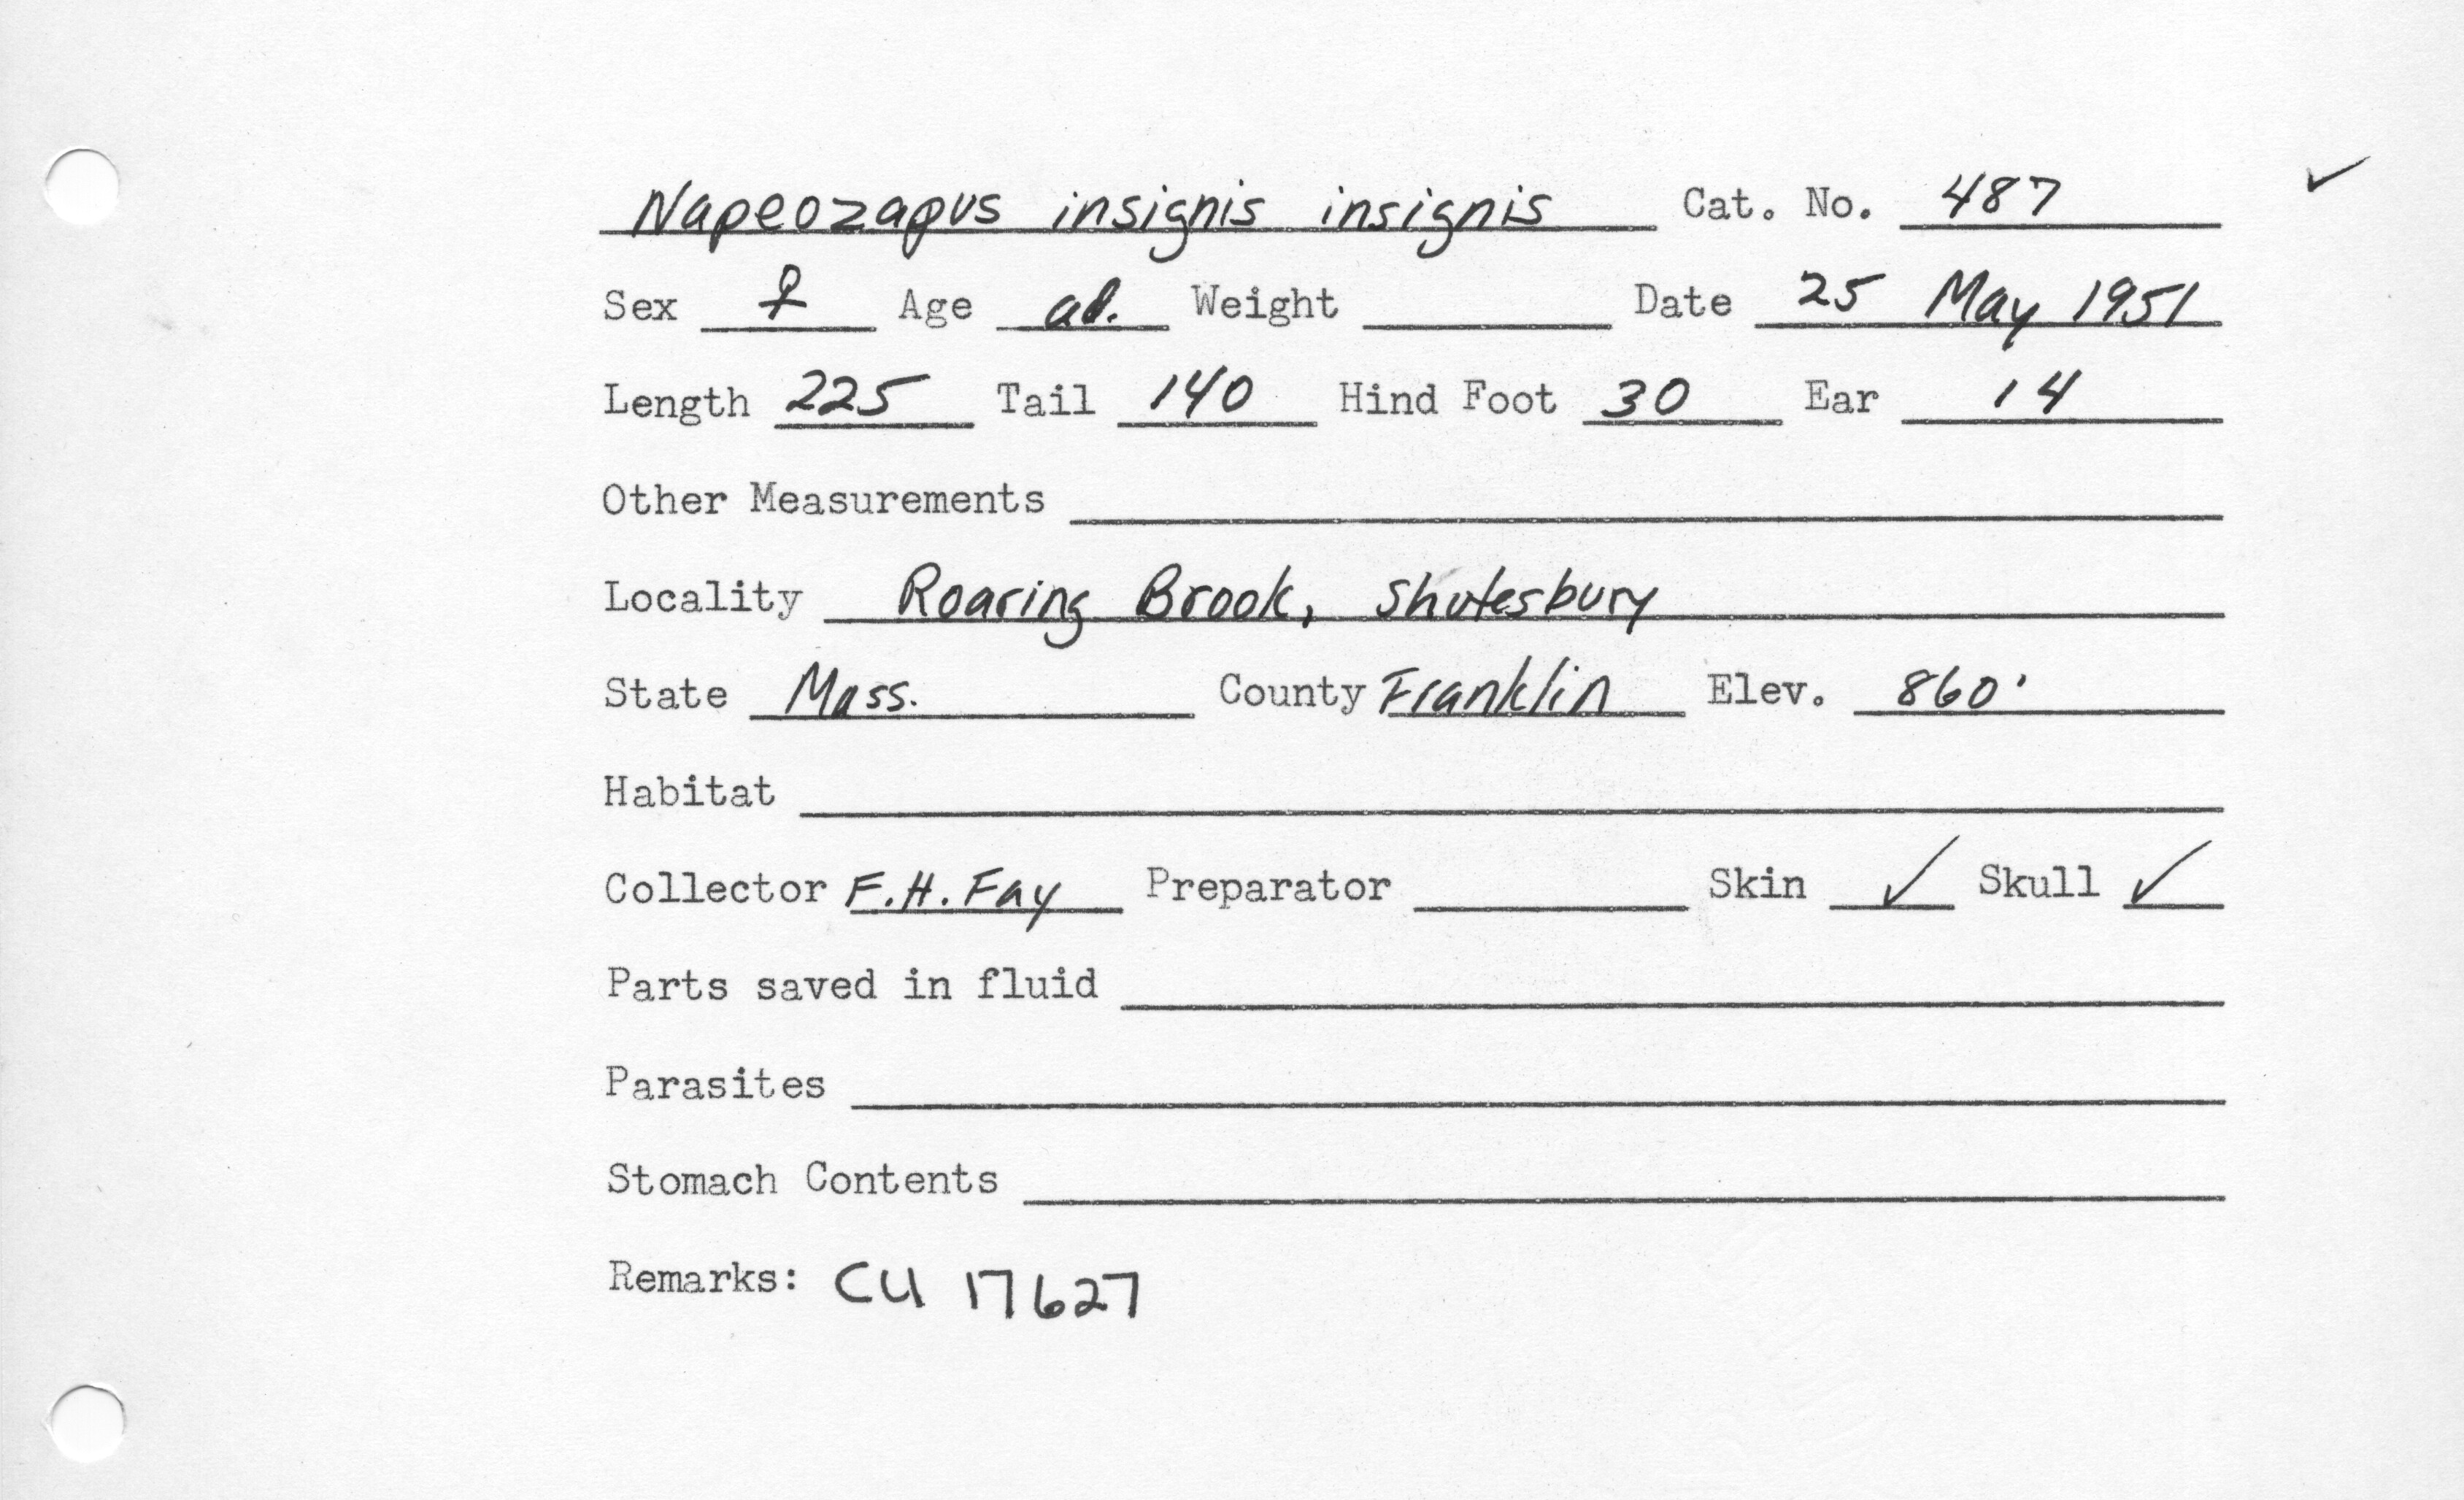 Napeozapus insignis insignis Cat. No. 487 ✓
Sex ♀ Age ad. Weight Date 25 May 1951
Length 225 Tail 140 Hind Foot 30 Ear 14
Other Measurements
Locality Roaring Brook, Shutesbury
State Mass. County Franklin Elev. 860'
Habitat
Collector F.H. Fay Preparator Skin ✓ Skull ✓
Parts saved in fluid
Parasites
Stomach Contents
Remarks: CU 17627